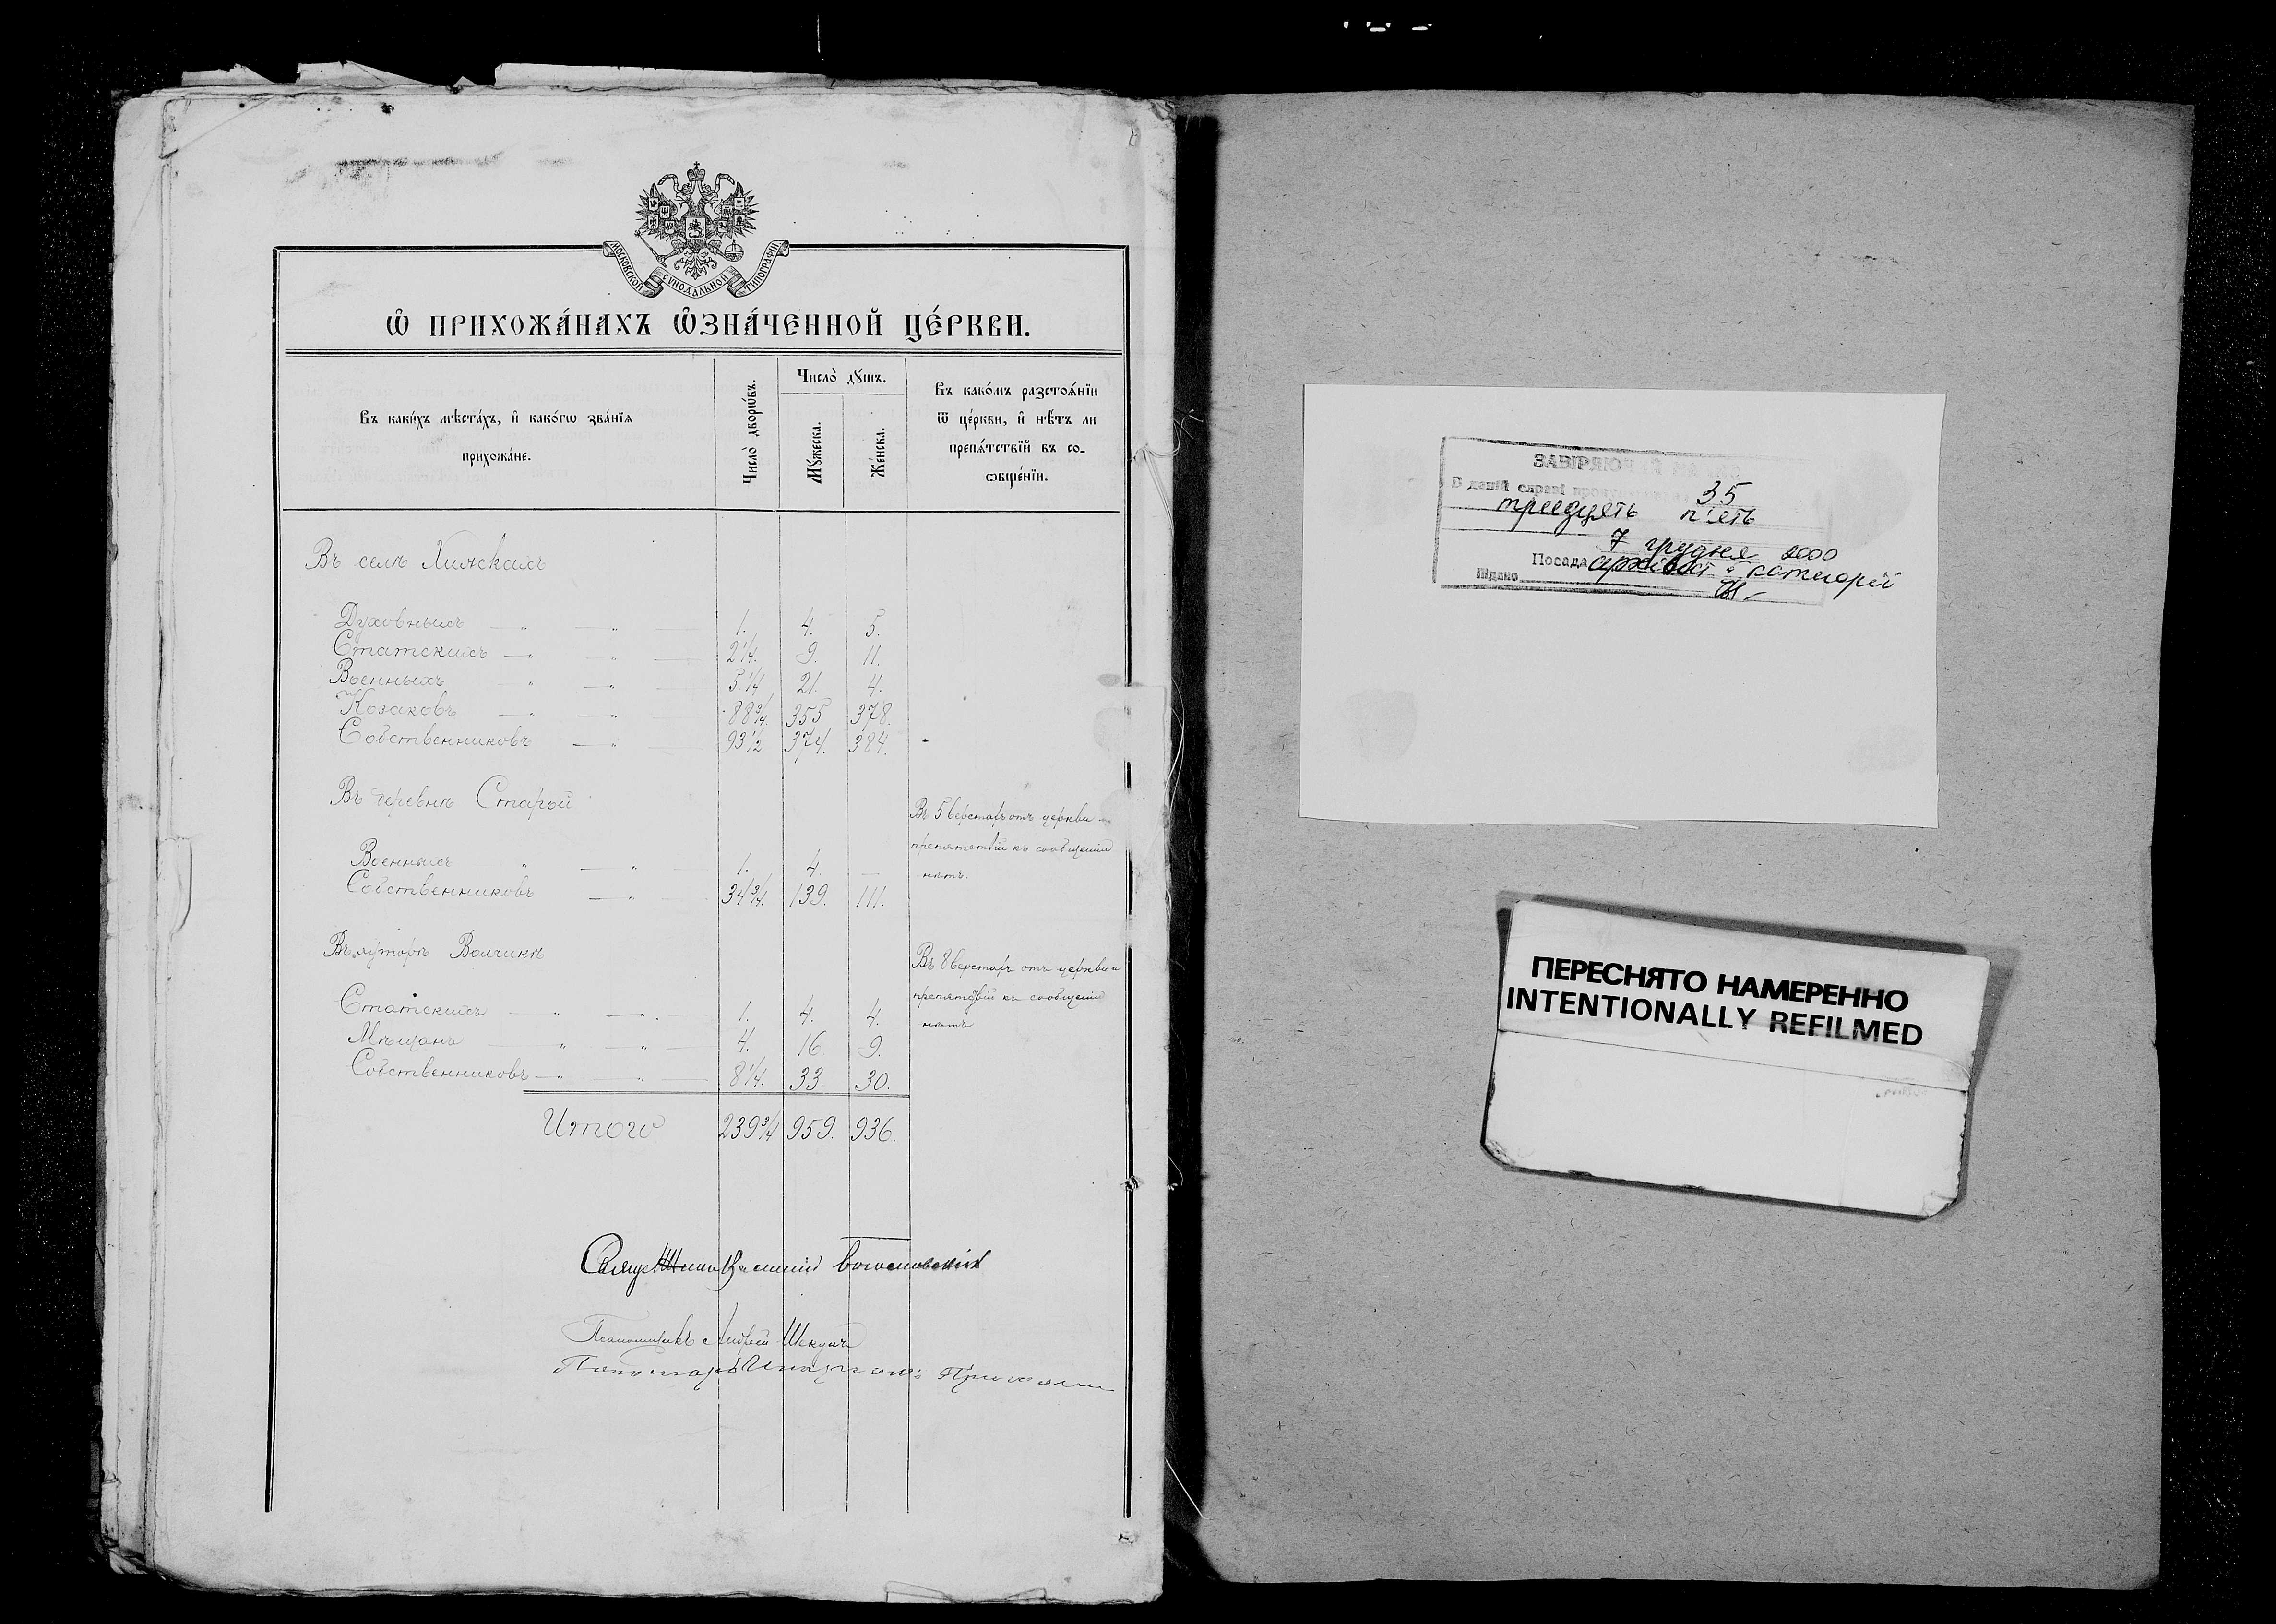 МОСКОВСКОЙ СУНОДАЛЬНОЙ ТИПОГРАФІИ
Ѡ ПРИХОЖА́НАХЪ ѠЗНА́ЧЕННОЙ ЦЕ́РКВИ.
Въ каки́хъ мѣста́хъ, и҆ како́гѡ зва́нїѧ
прихожа́не.
Число̀ дворѡ́въ.
Число̀ дꙋ́шъ.
Мꙋ́жеска.
Же́нска.
Въ како́мъ разстоѧ́нїи
ѿ це́ркви, и҆ нѣ́тъ ли
препѧ́тствїй въ со-
ѻбще́нїи.
Въ селѣ
Духовныхъ — „ — „ — 1. 4. 5.
Статскихъ — „ — „ — 2¼. 9. 11.
Военныхъ „ — „ — 5.¼ 21. 4.
Козаковъ — „ — „ — 88¾. 355 378.
Собственниковъ — „ — 93½ 374. 384.
Въ деревнѣ Старой
Въ 5 верстахъ отъ церкви
препятствій къ сообщенію
нѣтъ.
Военныхъ „ — „ — 1. 4. —
Собственниковъ — „ — 34¾. 139. 111.
Въ хуторѣ Волчикѣ
Въ 8 верстахъ отъ церкви и
препятствій къ сообщенію
нѣтъ
Статскихъ — „ — „ . 1. 4. 4.
Мѣщанъ — „ — „ — 4. 16 9.
Собственниковъ — „ — „ — 8¼. 33. 30.
Итого 239¾ 959. 936.
Василий Богословскій
Псаломщикъ Андрей
Пономарь
ЗАВІРЯЮЧИЙ
В даній справі 35
тридцять п'ять
7 грудня 2000
Посада архівіст категорії
Підпис
ПЕРЕСНЯТО НАМЕРЕННО
INTENTIONALLY REFILMED